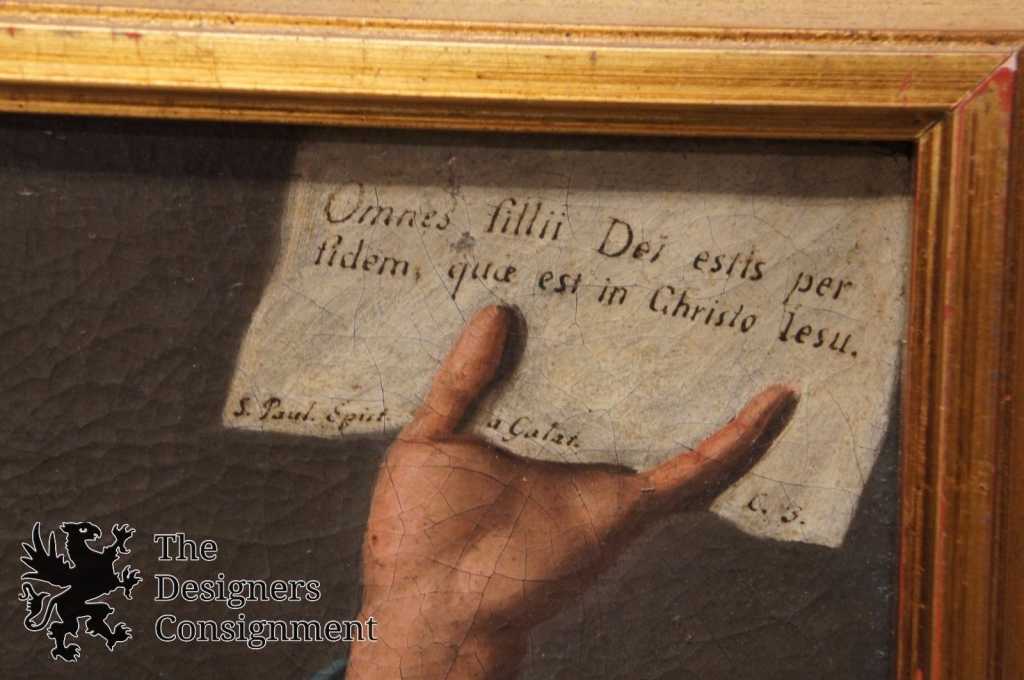 Omnes fillii Dei estis per
fidem, quæ est in Christo Iesu.
S. Paul. Epist. a Galat.
C. 3.
The
Designers
Consignment